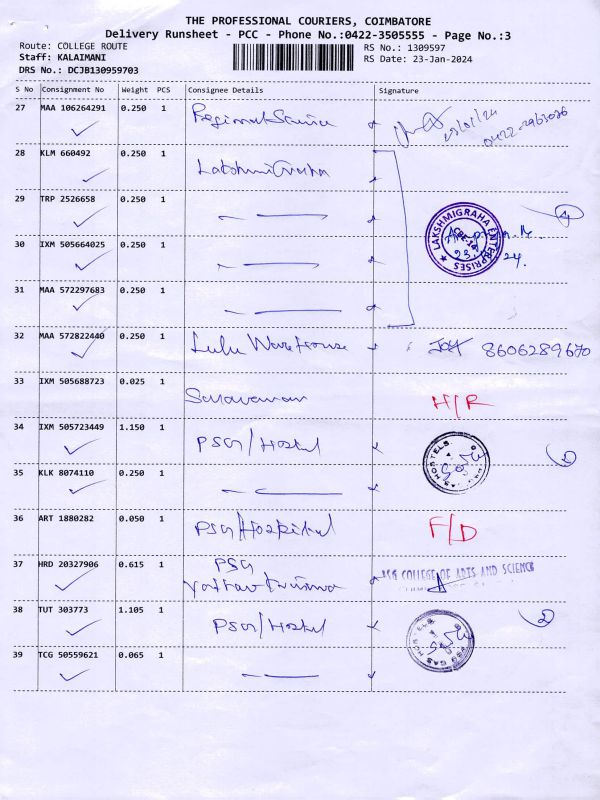 THE PROFESSIONAL COURIERS, COIMBATORE
Delivery Runsheet - PCC - Phone No.:0422-3505555 - Page No.:3
Route: COLLEGE ROUTE RS No.: 1309597
Staff: KALAIMANI RS Date: 23-Jan-2024
DRS No.: DCJB130959703
S No Consignment No Weight PCS Consignee Details Signature
27 MAA 106264291 0.250 1 Regional Science
28 KLM 660492 0.250 1 Lakshmi Graha
29 TRP 2526658 0.250 1
LAKSHMIGRAHA ENTERPRISES
30 IXM 505664025 0.250 1
31 MAA 572297683 0.250 1
32 MAA 572822440 0.250 1 Lulu Warehouse 8606289670
33 IXM 505688723 0.025 1 Saravanan H/R
34 IXM 505723449 1.150 1 PSG/Hostel
35 KLK 8074110 0.250 1
36 ART 1880282 0.050 1 PSG/Hospital F/D
37 HRD 20327906 0.615 1 PSG PSG COLLEGE OF ARTS AND SCIENCE
38 TUT 303773 1.105 1 PSG/Hostel
39 TCG 50559621 0.065 1